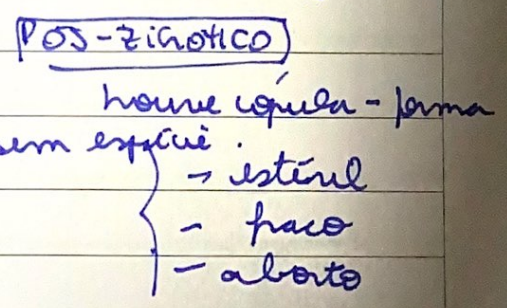 PÓS-ZIGÓTICO
houve cópula - forma
sem espécie.
→ estéril
- fraco
- aborto